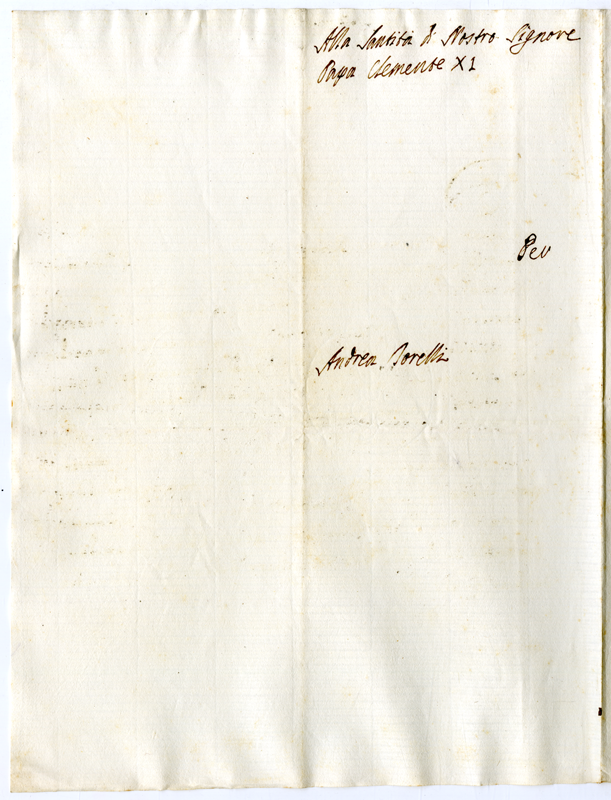 Alla Santità di Nostro Signore
Papa Clemente XI
Per
Andrea Borelli